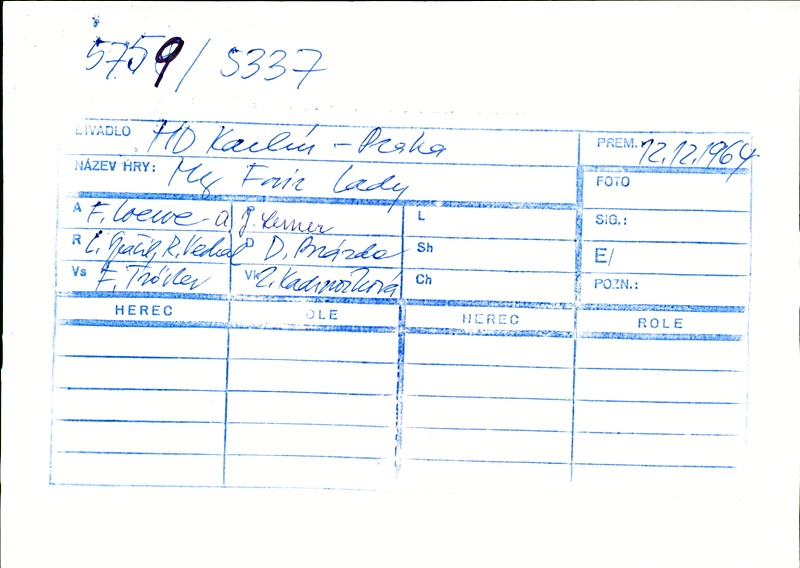 5759/5337
DIVADLO HD Karlín - Praha PREM. 12.12.1964
NÁZEV HRY: My Fair Lady FOTO
A F. Loewe - a J. Lerner L SIG.:
R R. Vedral D. Brázda Sh E/
Vs F. Tröster Vk Z. Kadrnožková Ch POZN.:
HEREC OLE HEREC ROLE